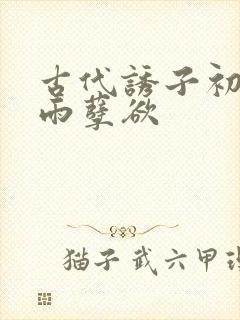 古代誘子初
雨孽欲
猫子武六甲